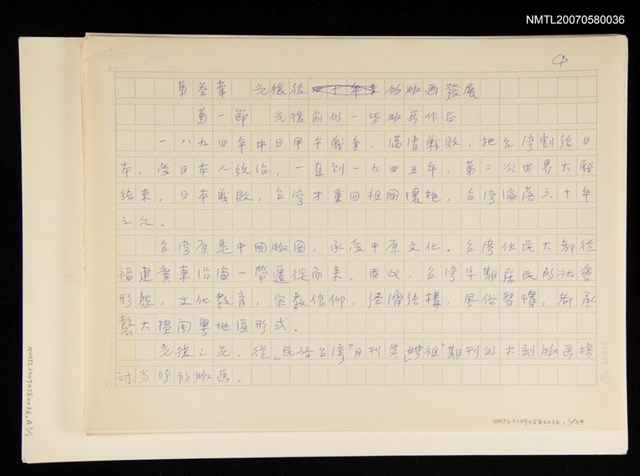 NMTL20070580036
第叁章 光復後四十年來的版画發展
第一節 光復前的一些版画作品
一八九四年中日甲午戰爭，滿清戰敗，把台湾割給日
本，受日本人統治，一直到一九四五年，第二次世界大戰
結束，日本戰敗，台湾才重回祖国懷抱，台湾淪落五十年
之久。
台湾原是中國版图，承受中原文化。台湾住民大都從
福建廣東沿海一帶遷徙而來，因此，台湾早期居民的社會
形態，文化教育，宗教信仰，經濟結構，風俗習慣，都承
襲大陸閩粵地區形式。
光復之先，從「民俗台湾」月刊與「媽祖」期刊的木刻版画探
討当時的版画。
NMTL20070580036, 1/39
NMTL20070580036, A 1/1